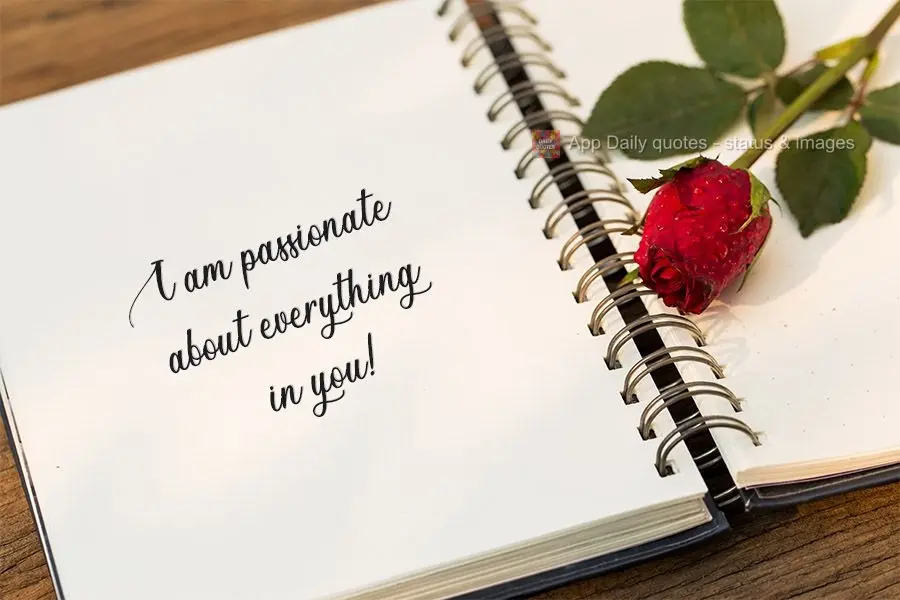 I am passionate
about everything
in you!
DAILY QUOTES
App Daily quotes - status & Images